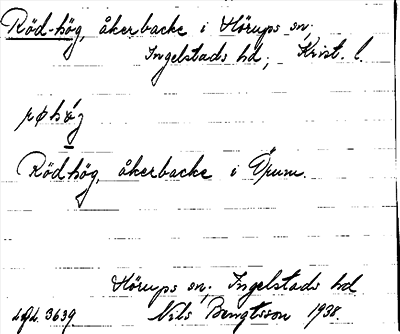 Röd-hög, åkerbacke i Hörups sn;
Ingelstads hd; Krist. l.
Rödhög, åkerbacke i Örum.
Hörups sn; Ingelstads hd
3639 Nils Bengtsson 1938.